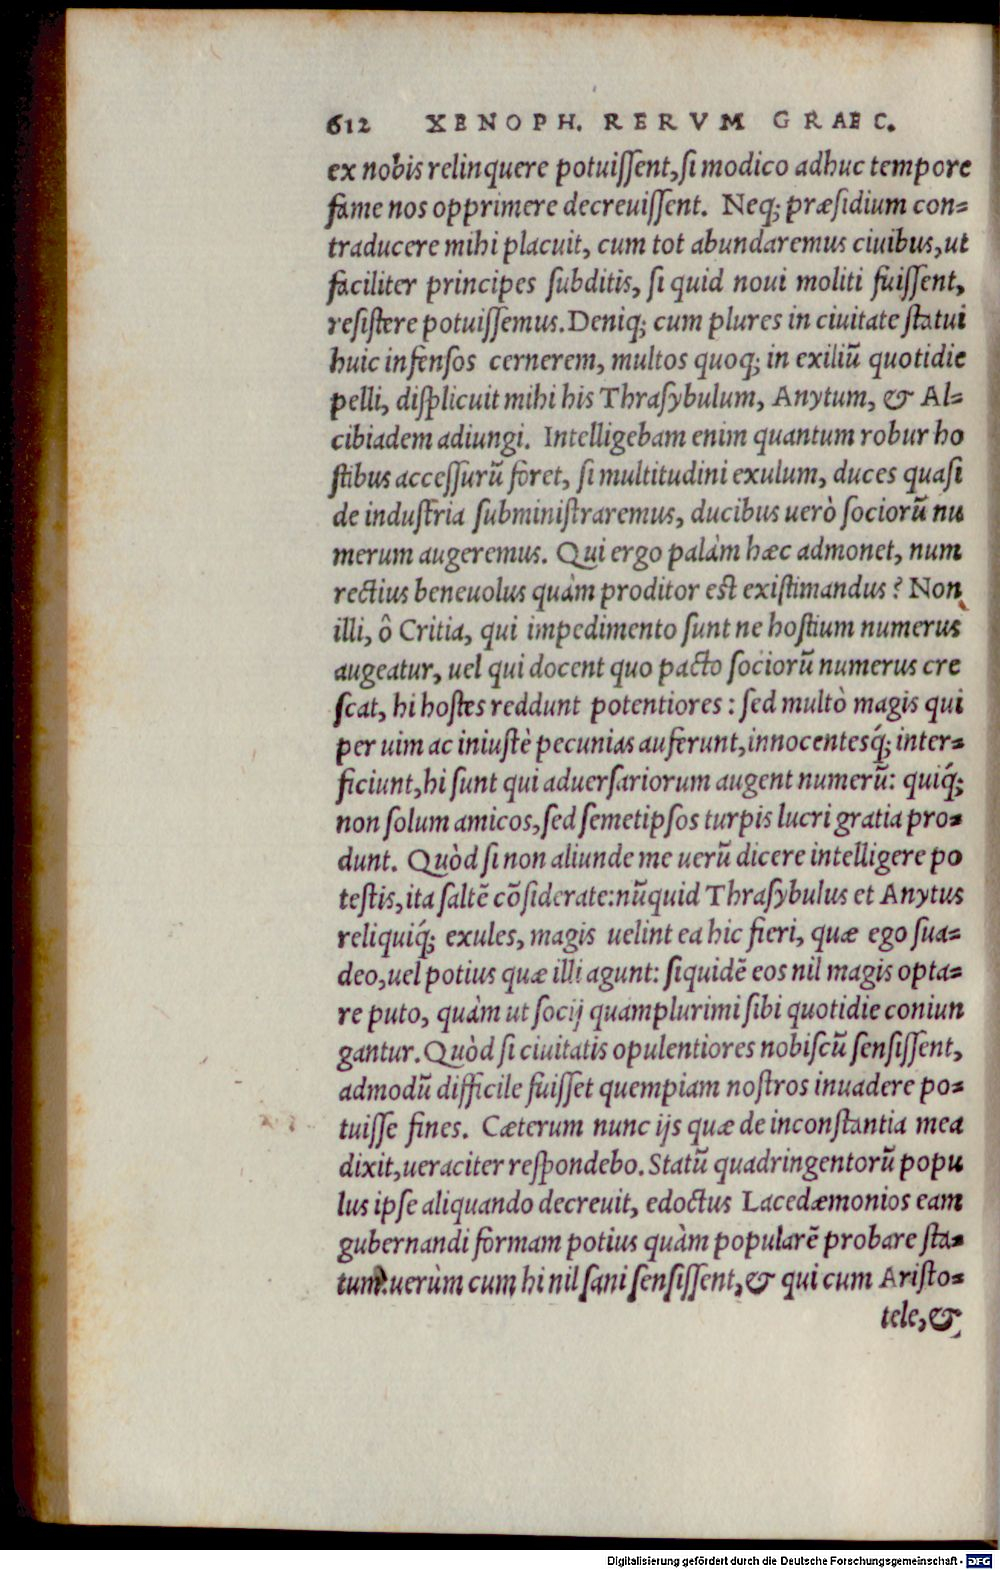 612 XENOPH. RERVM GRAEC.
ex nobis relinquere potuissent, si modico adhuc tempore
fame nos opprimere decreuissent. Neq; præsidium con=
traducere mihi placuit, cum tot abundaremus ciuibus, ut
faciliter principes subditis, si quid noui moliti fuissent,
resistere potuissemus. Deniq; cum plures in ciuitate statui
huic infensos cernerem, multos quoq; in exiliũ quotidie
pelli, displicuit mihi his Thrasybulum, Anytum, & Al=
cibiadem adiungi. Intelligebam enim quantum robur ho
stibus accessurũ foret, si multitudini exulum, duces quasi
de industria subministraremus, ducibus uerò sociorũ nu
merum augeremus. Qui ergo palàm hæc admonet, num
rectius beneuolus quàm proditor est existimandus? Non
illi, ô Critia, qui impedimento sunt ne hostium numerus
augeatur, uel qui docent quo pacto sociorũ numerus cre
scat, hi hostes reddunt potentiores: sed multò magis qui
per uim ac iniustè pecunias auferunt, innocentesq́; inter=
ficiunt, hi sunt qui aduersariorum augent numerũ: quiq́;
non solum amicos, sed semetipsos turpis lucri gratia pro=
dunt. Quòd si non aliunde me uerũ dicere intelligere po
testis, ita saltẽ cõsiderate: nũquid Thrasybulus et Anytus
reliquiq́; exules, magis uelint ea hic fieri, quæ ego sua=
deo, uel potius quæ illi agunt: siquidẽ eos nil magis opta=
re puto, quàm ut socij quamplurimi sibi quotidie coniun
gantur. Quòd si ciuitatis opulentiores nobiscũ sensissent,
admodũ difficile fuisset quempiam nostros inuadere po=
tuisse fines. Cæterum nunc ijs quæ de inconstantia mea
dixit, ueraciter respondebo. Statũ quadringentorũ popu
lus ipse aliquando decreuit, edoctus Lacedæmonios eam
gubernandi formam potius quàm popularẽ probare sta=
tum. uerùm cum hi nil sani sensissent, & qui cum Aristo=
tele, &
Digitalisierung gefördert durch die Deutsche Forschungsgemeinschaft - DFG